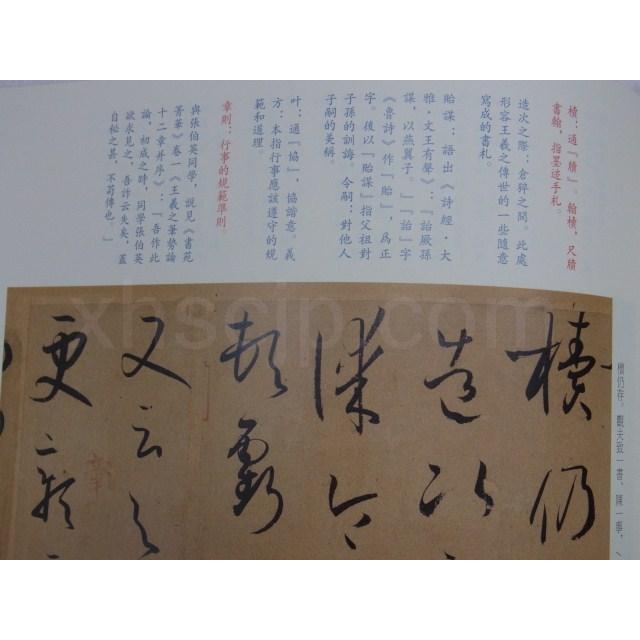 櫝：通『牘』。翰櫝，尺牘
書翰，指墨迹手札。
造次之際：倉猝之間。此處
形容王羲之傳世的一些隨意
寫成的書札。
貽謀：語出《詩經·大
雅·文王有聲》：『詒厥孫
謀，以燕翼子。』『詒』字
《魯詩》作『貽』，爲正
字。後以『貽謀』指父祖對
子孫的訓誨。令嗣：對他人
子嗣的美稱。
叶：通『協』，協諧意。義
方：本指行事應該遵守的規
範和道理。
章則：行事的規範準則。
與張伯英同學，説見《書苑
菁華》卷一《王羲之筆勢論
十二章并序》：『吾作此
論，初成之時，同學張伯英
欲求見之，吾詐云失矣，蓋
自秘之甚，不苟傳也。』
櫝仍存。觀夫致一書，陳一事，
櫝仍
造次
謀令
章則
頓虧
又云
更
xhscip.com